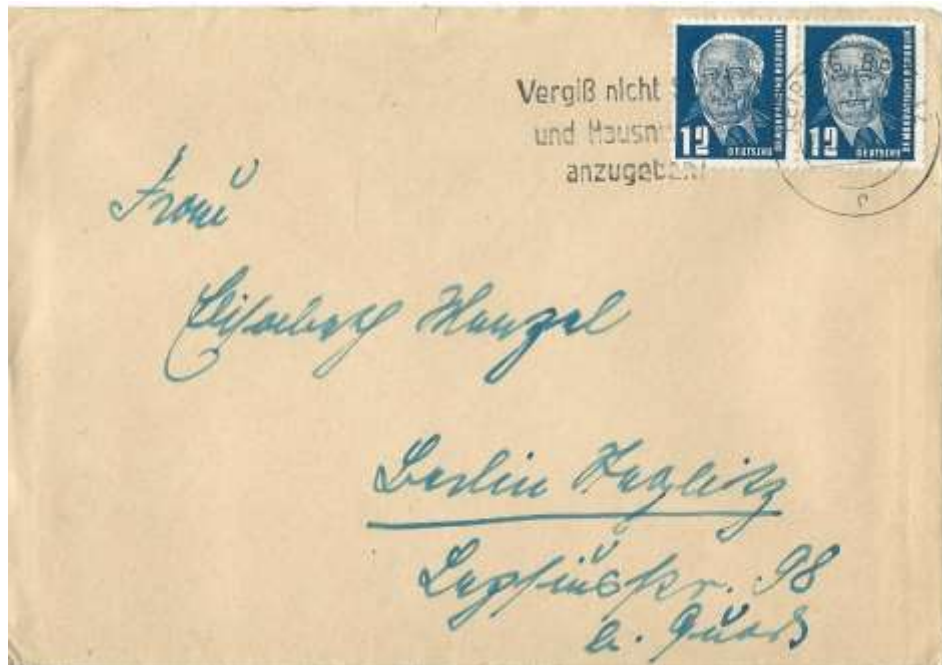 Vergiß nicht
und Hausn
anzugeben!
12 DEUTSCHE DEMOKRATISCHE REPUBLIK
12 DEUTSCHE DEMOKRATISCHE REPUBLIK
Frau
Elisabeth
Berlin Steglitz
Lepsiusstr. 98
b.